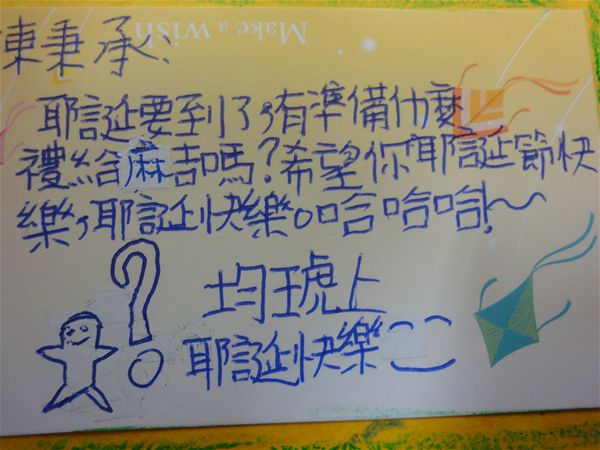 Make a wish
陳秉承、
耶誕要到了,有準備什麼
禮給麻吉嗎?希望你耶誕節快
樂,耶誕快樂。哈哈哈!~
?
均琥上
耶誕快樂